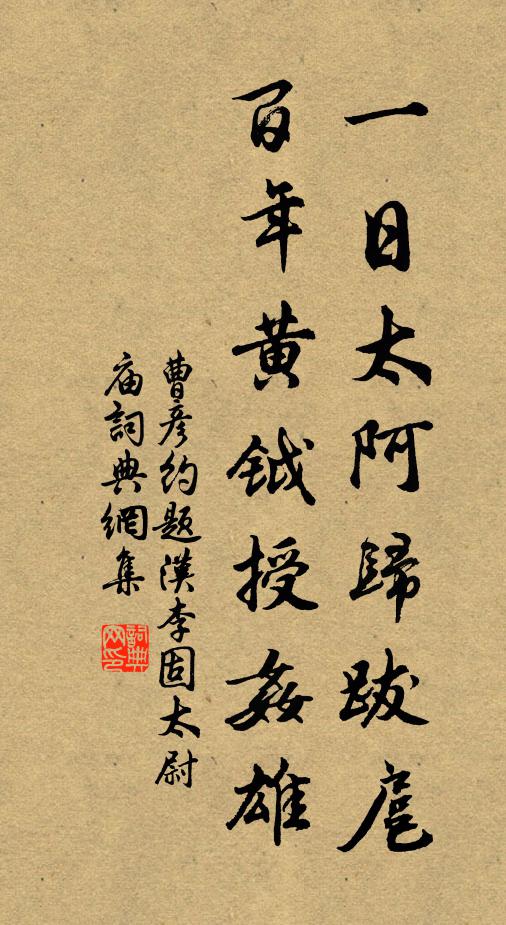 一日太阿歸跋扈
百年黃鉞授姦雄
曹彥約題漢李固太尉
庙詞典網集
詞典
网印